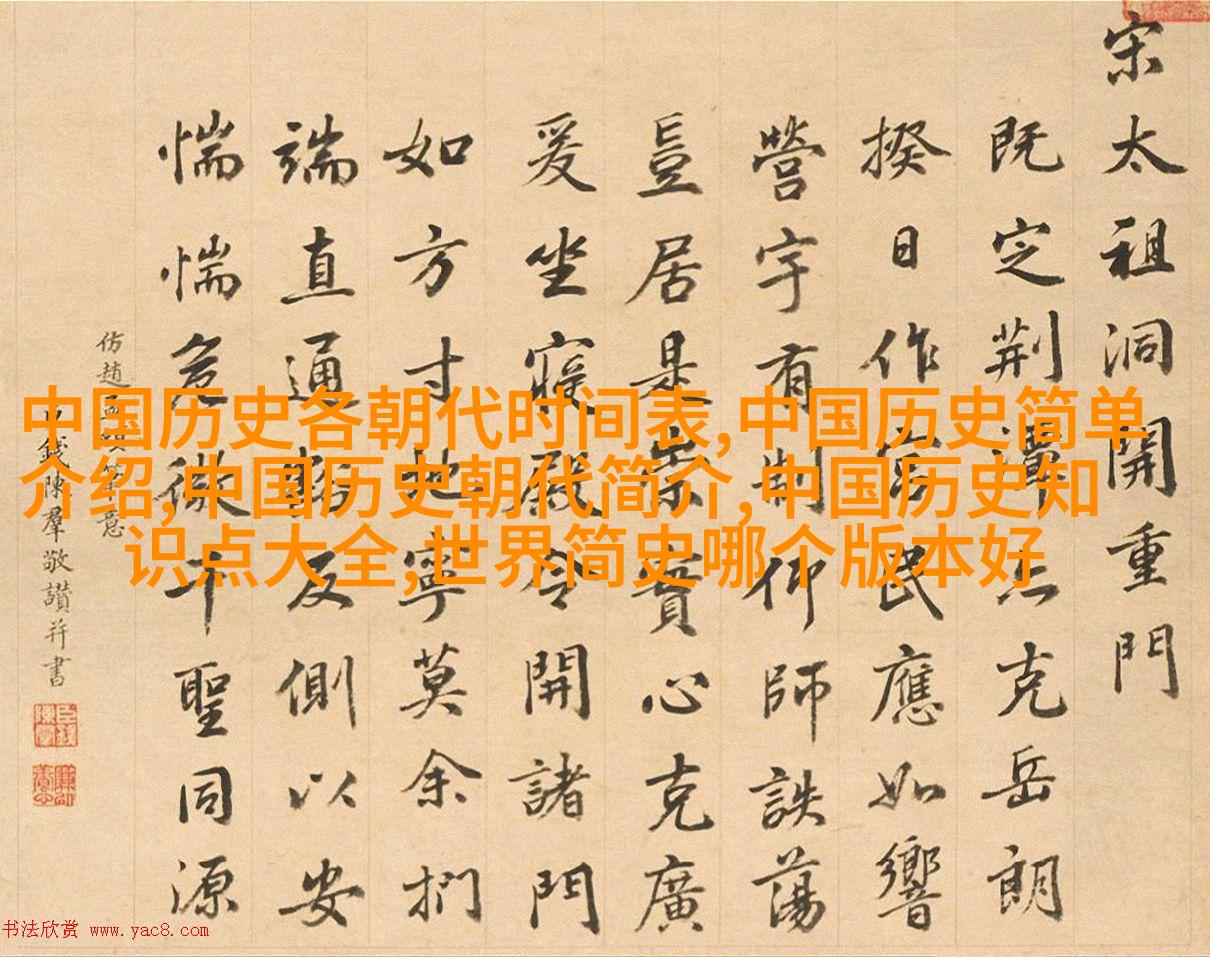 中国历史各朝代时间表,中国历史简单
介绍,中国历史朝代简介,中国历史知
识点大全,世界简史哪个版本好
宋太祖洞開重門
既定荆潭亦克岳朗
揆日作宫民應如響
營宇有制仰師詄蕩
豈居是崇實心克廣
爰坐寢殿令開諸門
如方寸地寧莫余捫
端直通豁反側以安
惴惴危微千聖同源
仿趙孟頫筆意
臣錢陳羣敬讚并書
书法欣赏 www.yac8.com